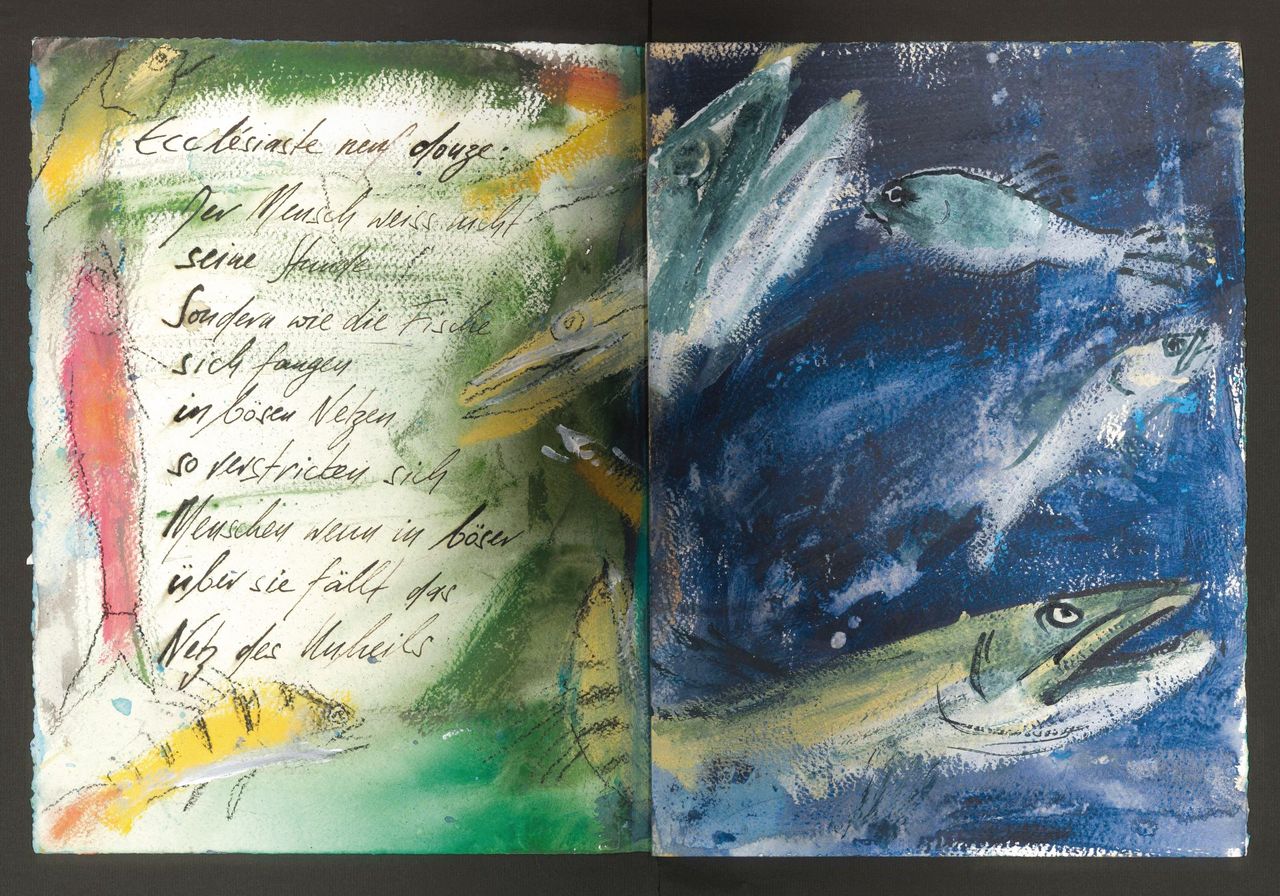 Ecclésiaste neuf douze:
Der Mensch weiss nicht
seine Stunde
Sondern wie die Fische
sich fangen
in bösen Netzen
so verstricken sich
Menschen wenn in böser
über sie fällt das
Netz des Unheils